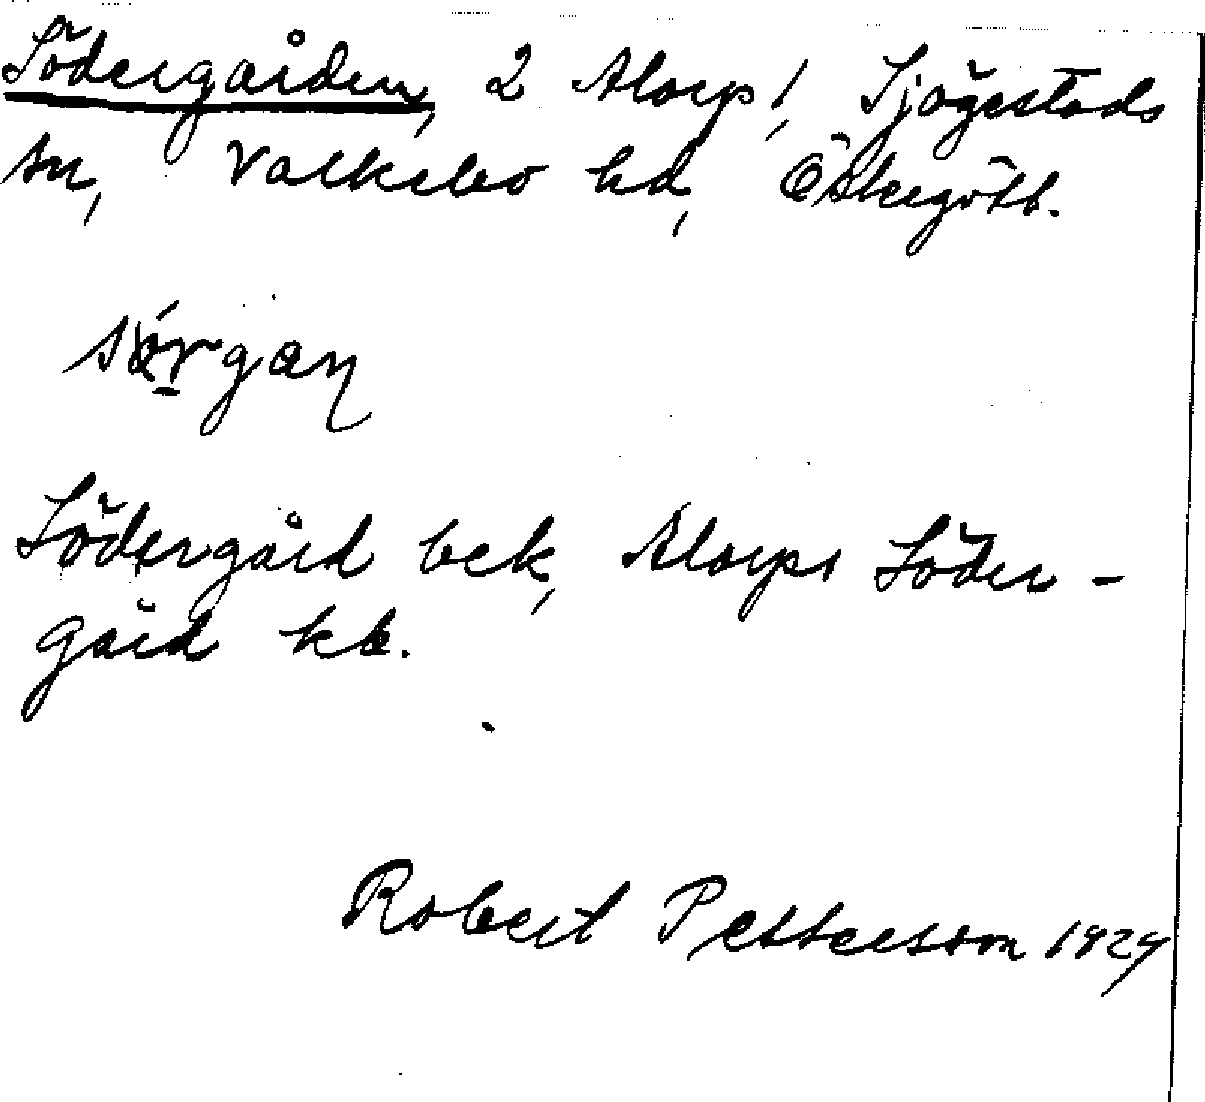 Södergården, 2 Alorp!, Sjögestads
sn, Valkebo hd, Östergötl.
sörgaɳ
Södergård bek, Alorps Söder-
gård kb.
Robert Pettersson 1929